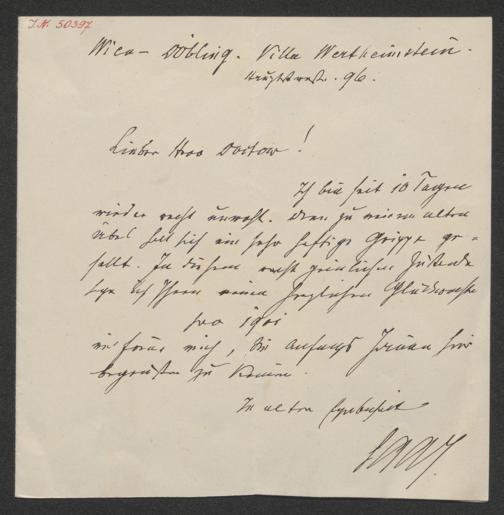 I.N. 50397
Wien – Döbling. Villa Wertheimstein.
Hauptstrasse 96.
Lieber Herr Doctor!
Ich bin seit 10 Tagen
wieder recht unwohl. Denn zu meinem alten
Übel hat sich eine sehr heftige Grippe ge-
sellt. In diesem recht peinlichen Zustande
sage ich Ihnen meinen herzlichsten Glückwunsch
pro 1901
und freue mich, Sie Anfangs Januar hier
begrüßen zu können.
In alter Ergebenheit
Saar.